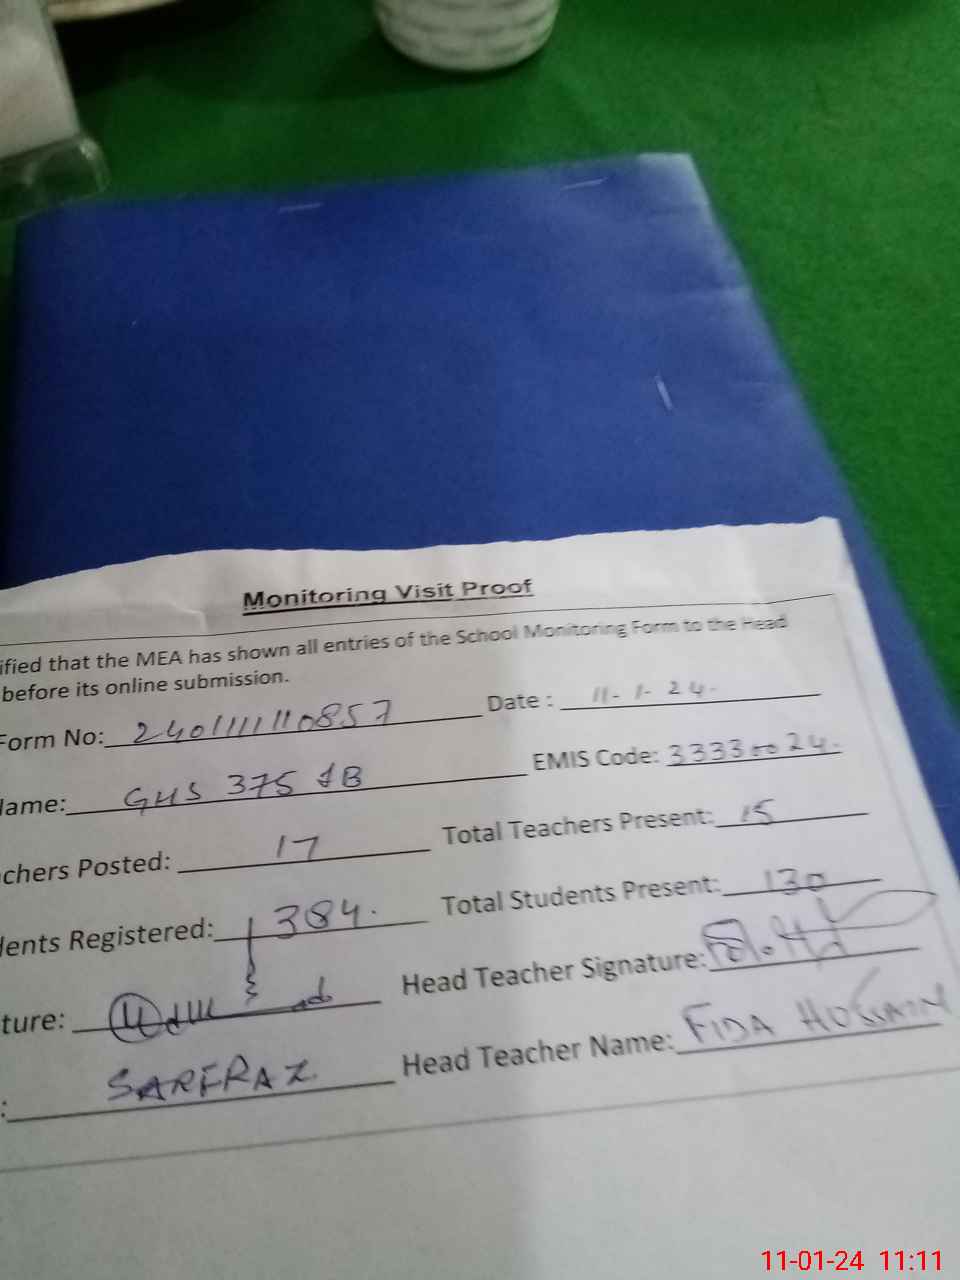 Monitoring Visit Proof
ified that the MEA has shown all entries of the School Monitoring Form to the Head
before its online submission.
Form No: 2401111110857 Date : 11-1-24.
lame: GHS 375 JB EMIS Code: 33330024.
chers Posted: 17 Total Teachers Present: 15
lents Registered: 384. Total Students Present: 130
ture: Head Teacher Signature:
: SARFRAZ Head Teacher Name: FIDA HUSSAIN
11-01-24 11:11